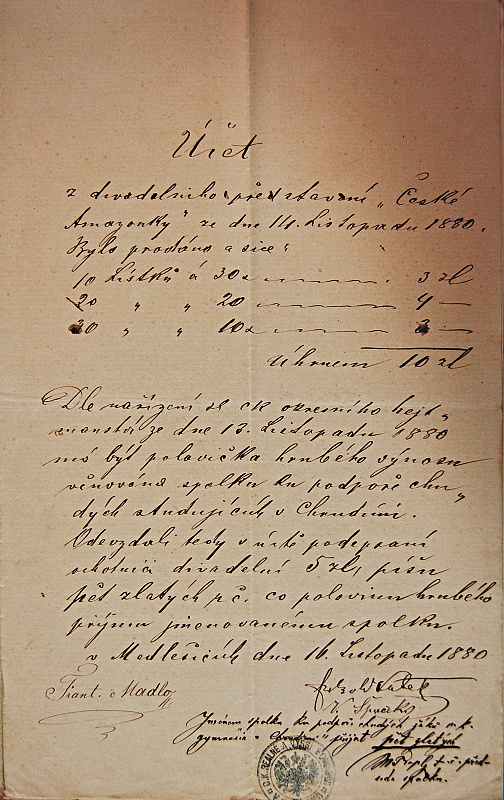 Účet
z divadelního představení „České
Amazonky" ze dne 14. Listopadu 1880.
Bylo prodáno a sice:
10 Lístků á 30x 3 zl
20 „ „ 20 4 —
30 „ „ 10x 3 —
Úhrnem 10 zl
Dle nařízení sl ck okresního hejt„
manství ze dne 13. Listopadu 1880
má být polovička hrubého výnosu
věnována spolku ku podpoře chu„
dých studujících v Chrudimi.
Odevzdali tedy v úctě podepsaní
ochotníci divadelní 5 zl, píšu
pět zlatých r. č. co polovinu hrubého
příjmu jmenovanému spolku.
v Medlešicích dne 16. Listopadu 1880
Frant. Mádlo
V.
Jménem spolku ku podpoře chudých žáků c. k.
gymnasia v Chrudimi přijal pět zlatých
t. č. před-
seda spolku.